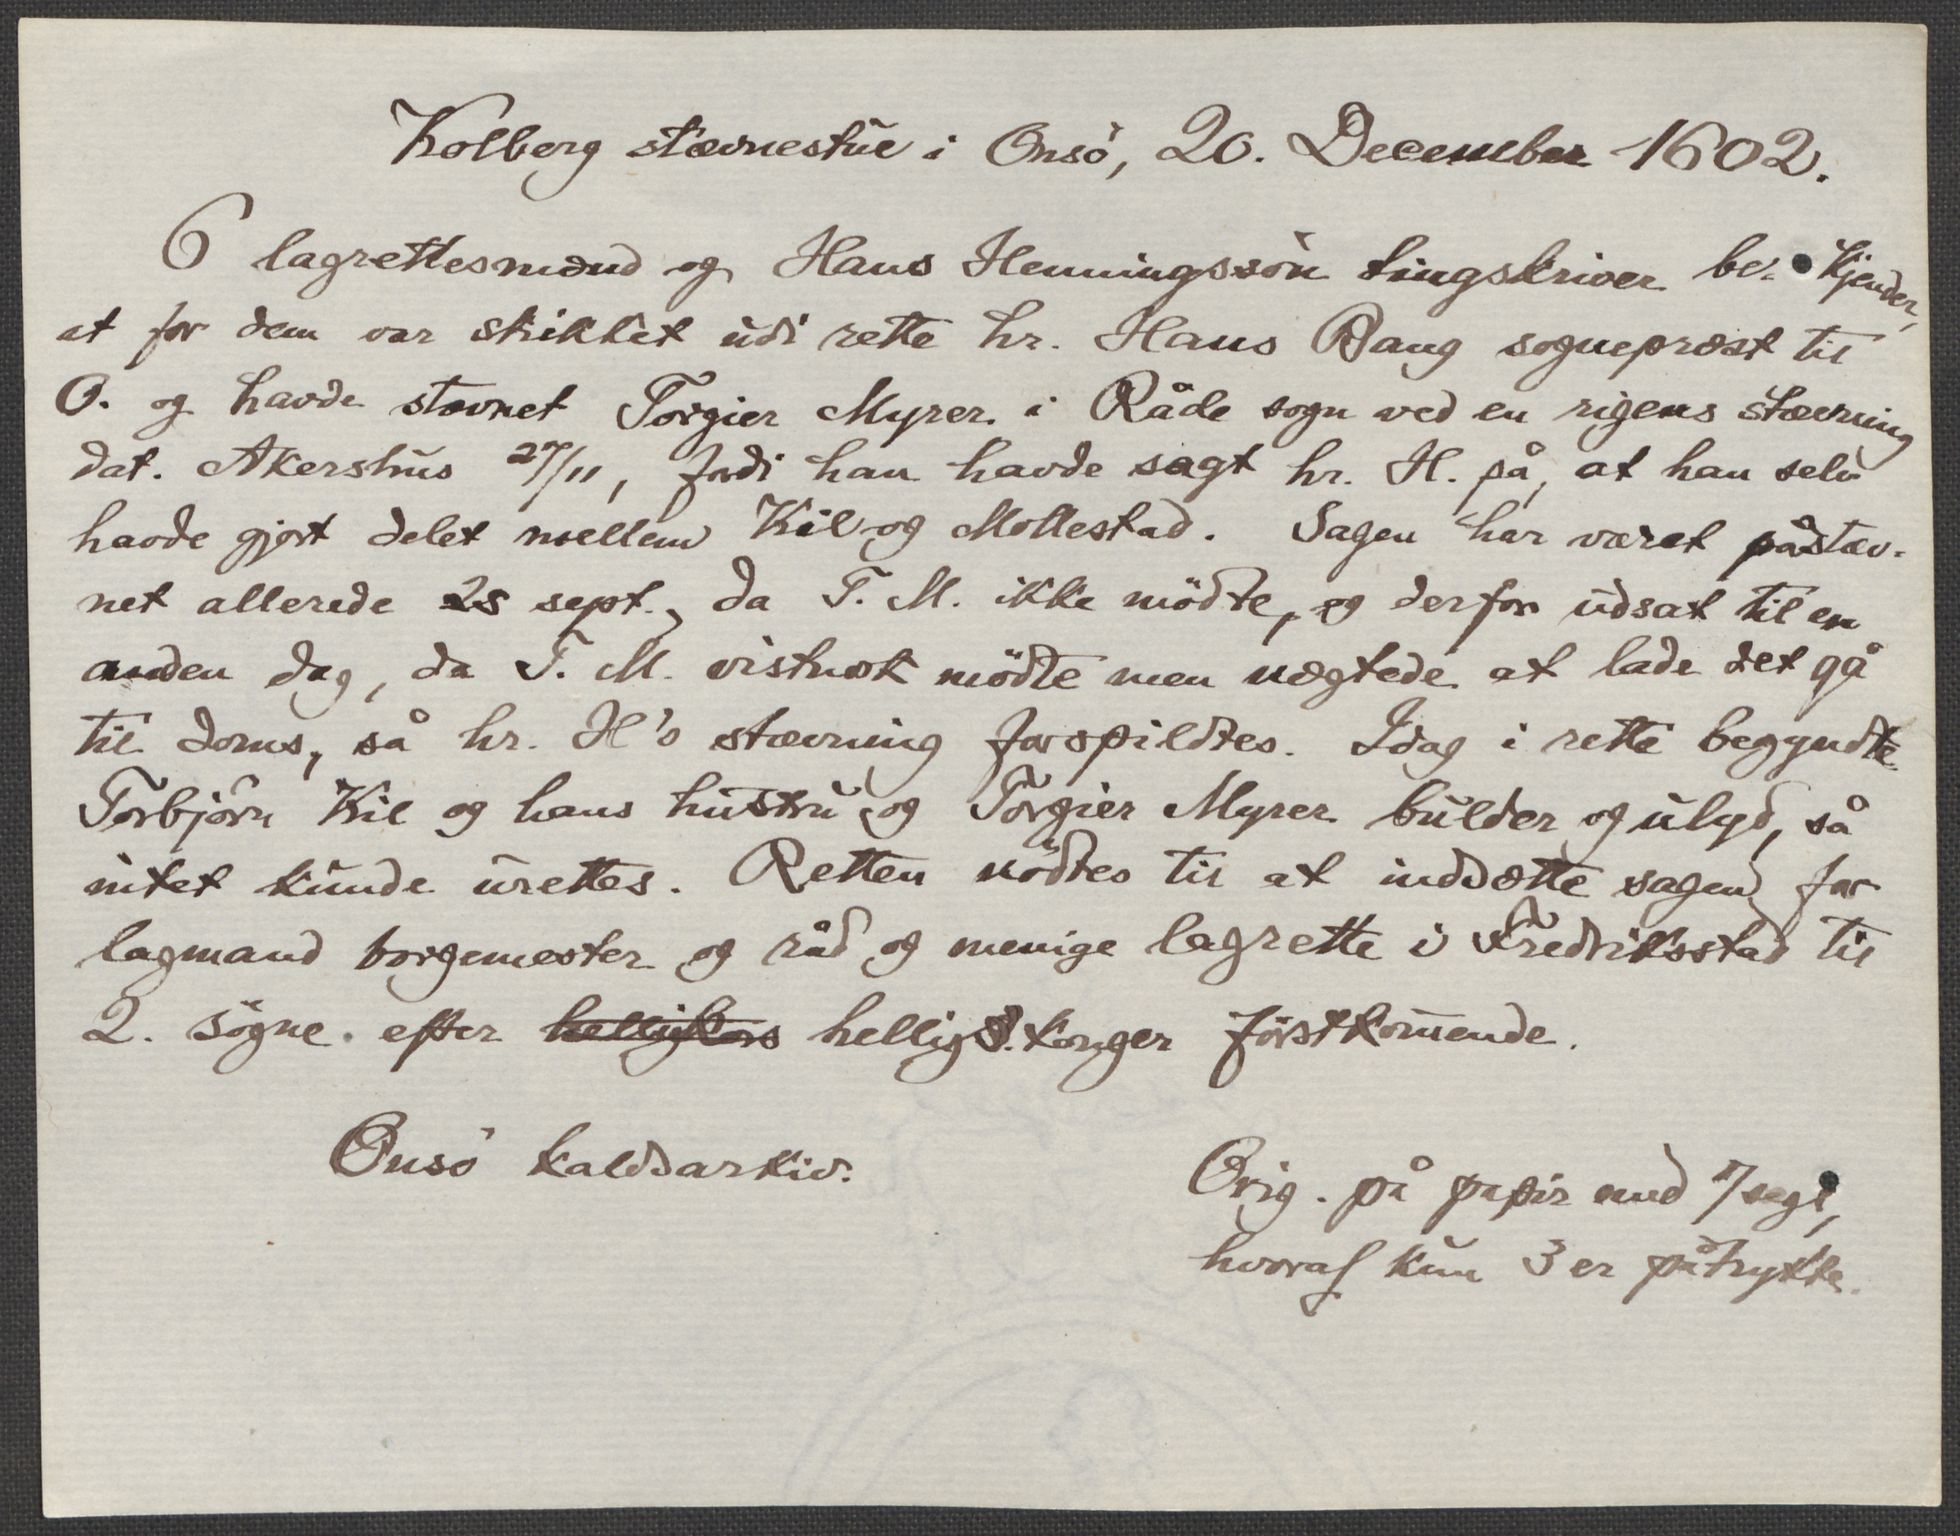 Kolberg stævnestue i Onsö, 20. December 1602.
6 lagrettesmænd og Hans Henningssön tingskriver be- kjender,
at for dem var skikket udi rette hr. Hans Bang sogneprest til
O. og havde stævnet Torgier Myrer i Råde sogn ved en rigens stævning
dat. Akershus 27/11, fordi han havde sagt hr. H. på, at han selv
havde gjort delet mellem Kil og Mollestad. Sagen har været påstæv-
net allerede 2s sept., da T. M. ikke mödte, og derfor udsat til en
anden dag, da T. M. vistnok mödte men nægtede at lade det gå
til doms, så hr. H's stævning forspildtes. Idag i rette begyndte
Torbjörn Kil og hans hustru og Torgier Myrer bulder og ulyd, så
intet kunde urettes. Retten nödtes til at indsætte sagen for
lagmand borgemester og råd og menige lagrette i Fredriksstad til
2. sögne. efter helligkors hellig 3. konger förstkommende.
Onsö kaldsarkiv.
Orig. på papir med 7 segl,
hvoraf kun 3 er påtrykte.